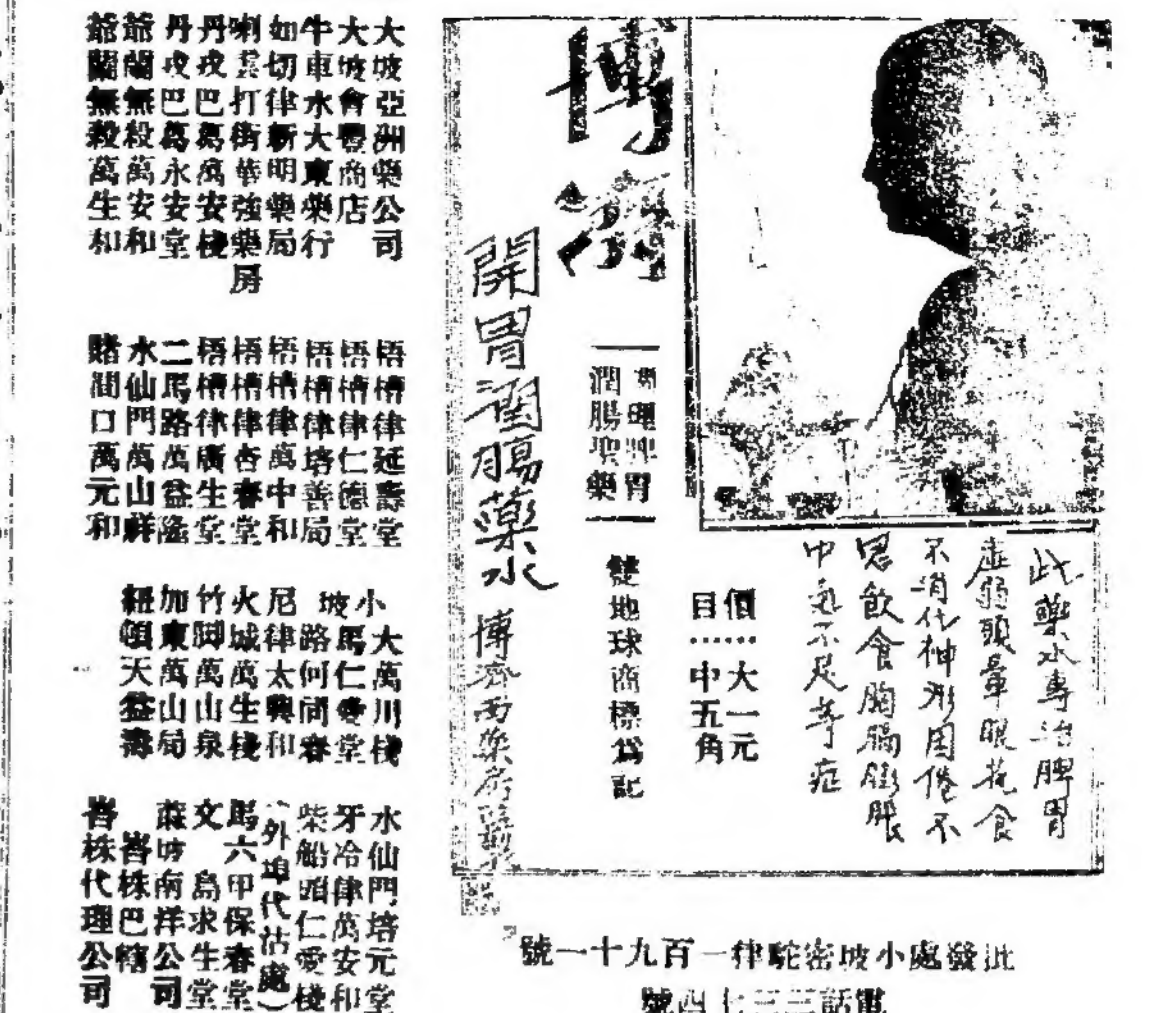 博濟
此藥水專治脾胃
虛弱頭暈眼花食
不消化神形困倦不
思飲食胸膈膨脹
中氣不足等症
價……大一元
目……中五角
調理脾胃
潤腸聖藥
雙地球商標為記
開胃潤腸藥水 博濟西藥房製
批發處小坡密駝律一百九十一號
電話三三七四號
大坡亞洲藥公司
大坡會豐商店
牛車水大東藥行
如切律新明藥局
喇打街華強藥房
丹戎巴葛萬安棧
丹戎巴葛永安堂
爺蘭無殺萬安和
爺蘭無殺萬生和
梧槽律延壽堂
梧槽律仁德堂
梧槽律培善局
梧槽律萬中和
梧槽律杏春堂
梧槽律廣生堂
二馬路萬益隆
水仙門萬山祥
賭間口萬元和
小坡
大萬川棧
馬仁愛堂
路何同春
尼律太興和
火城萬生棧
竹脚萬山泉
加東萬山局
紐頓天益壽
水仙門培元堂
牙冷律萬安和
柴船頭仁愛棧
（外埠代沽處）
馬六甲保春堂
文島求生堂
蔴坡南洋公司
峇株巴轄
峇株代理公司